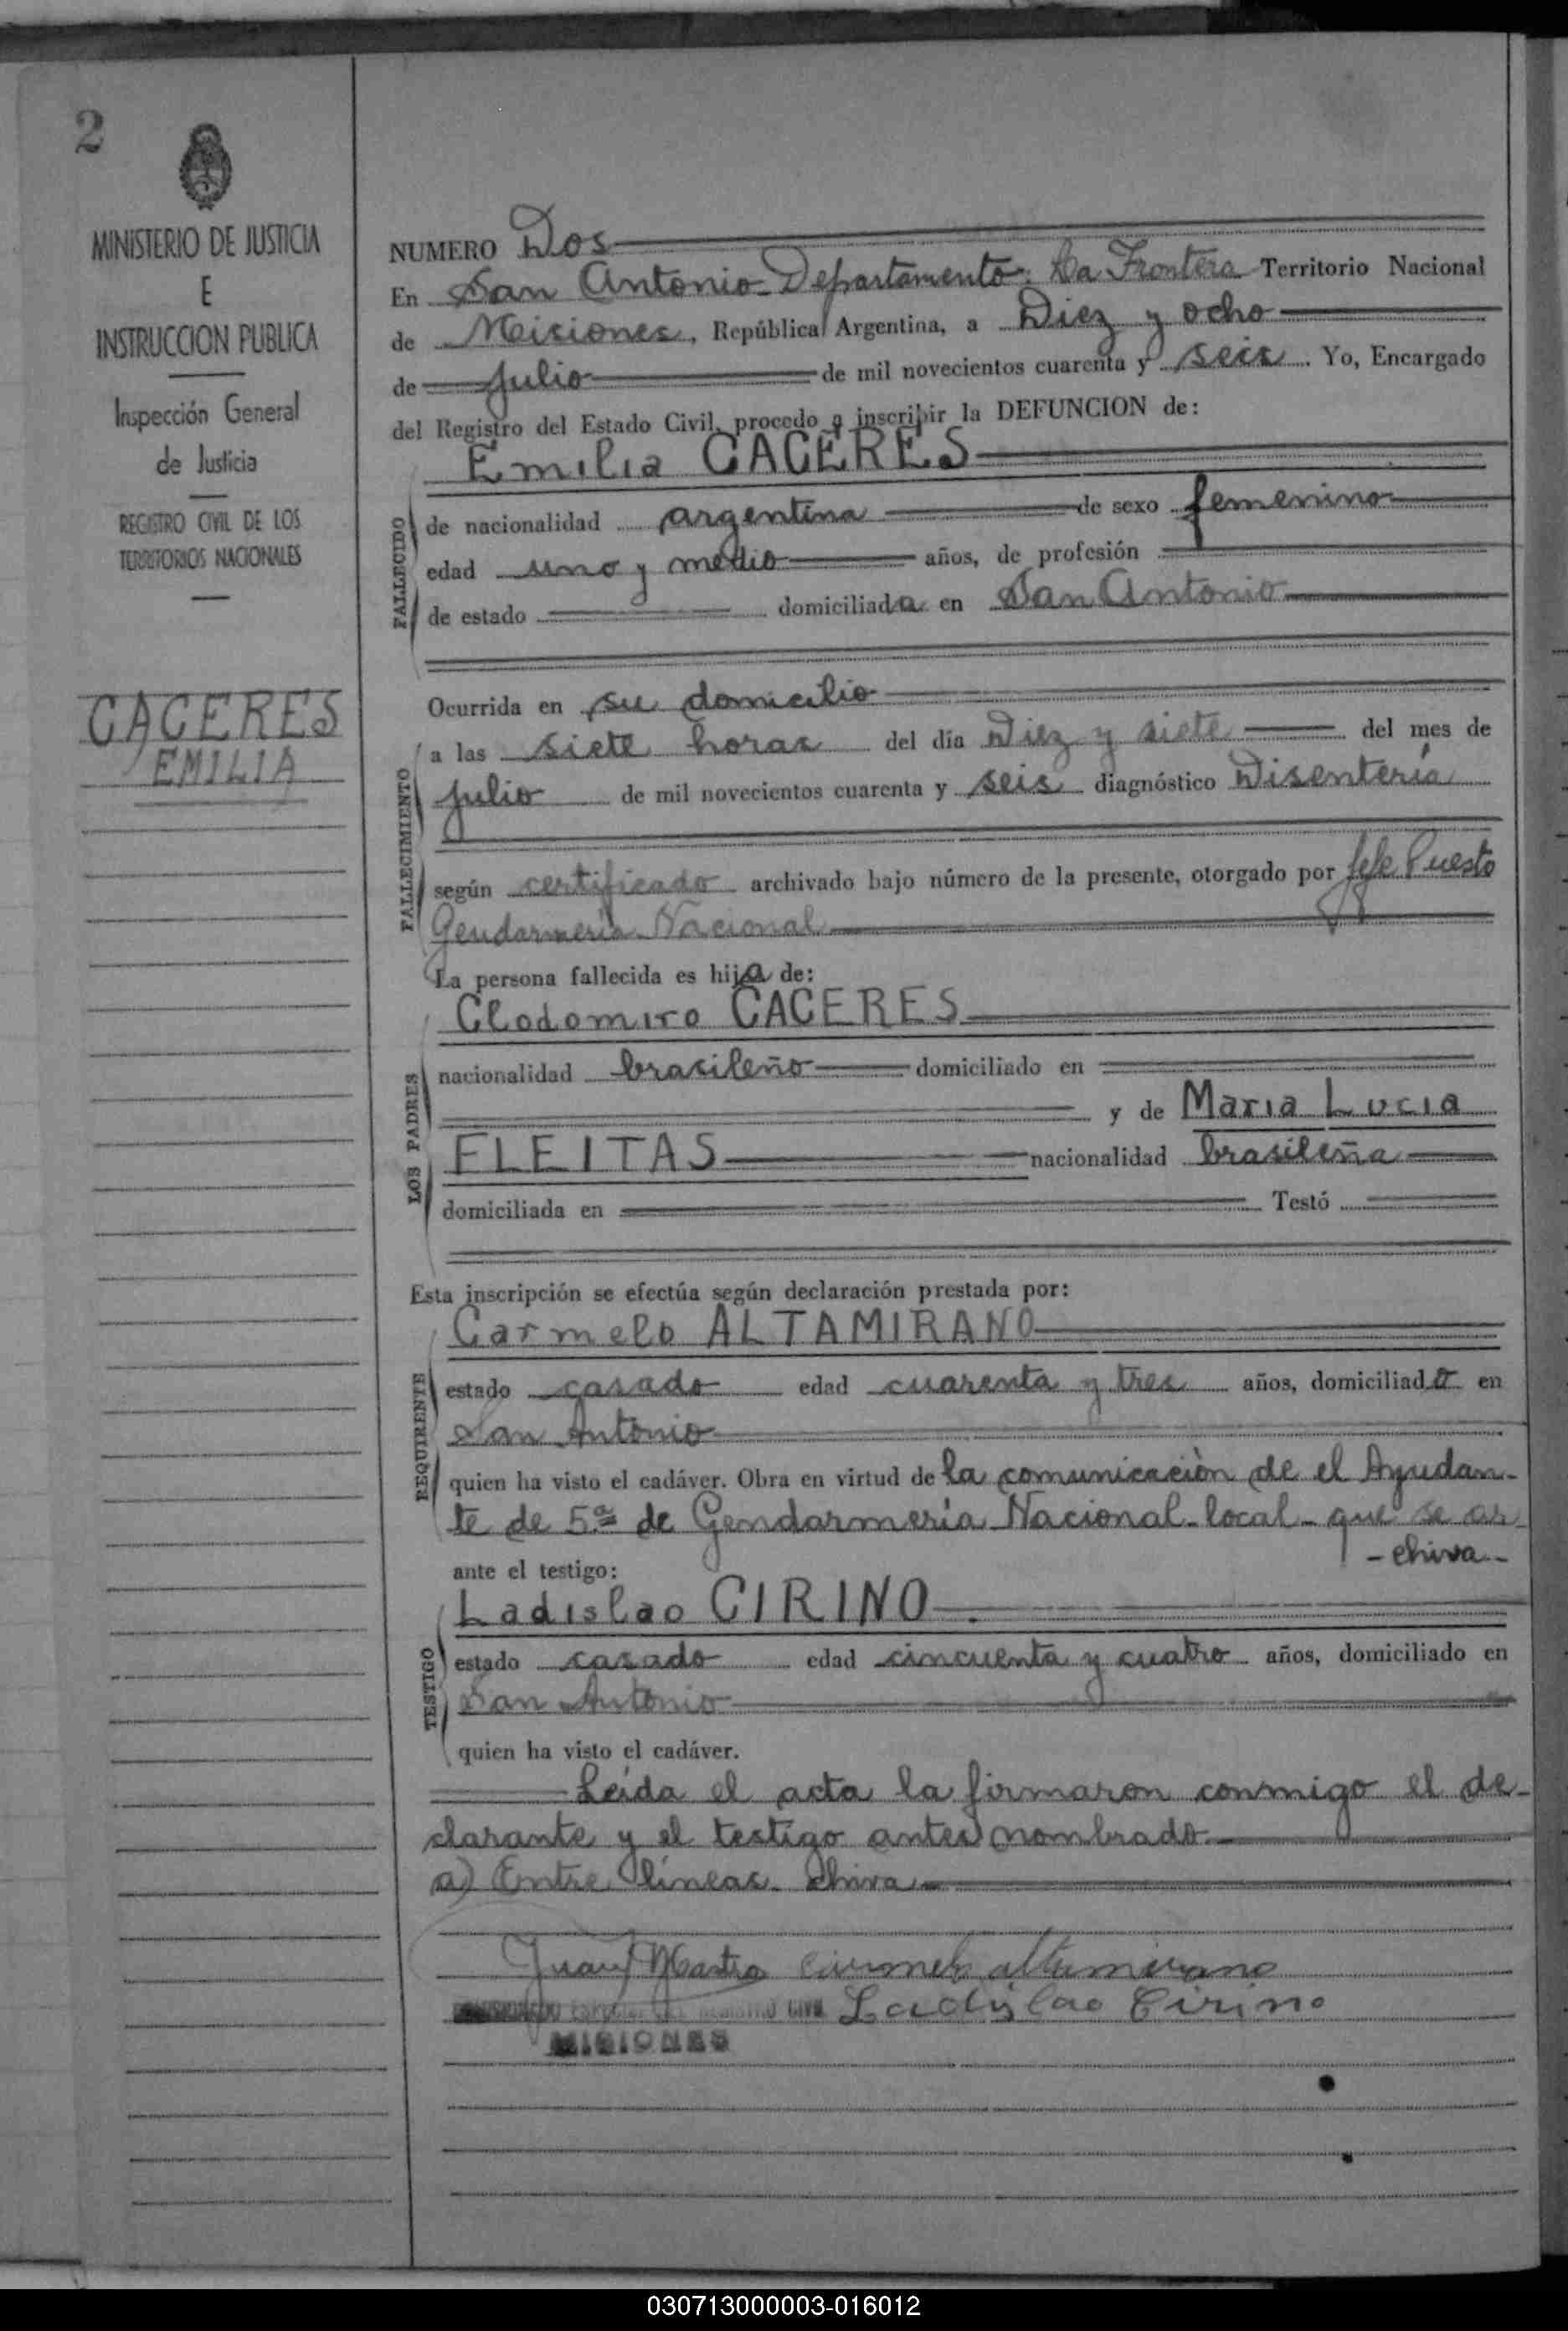 2
MINISTERIO DE JUSTICIA
E
INSTRUCCION PUBLICA
Inspección General
de Justicia
REGISTRO CIVIL DE LOS
TERRITORIOS NACIONALES
CACERES
EMILIA
NUMERO Dos
En San Antonio-Departamento: La Frontera Territorio Nacional
de Misiones, República Argentina, a Diez y ocho
de julio de mil novecientos cuarenta y seis. Yo, Encargado
del Registro del Estado Civil, procedo a inscribir la DEFUNCION de:
Emilia CACERES
FALLECIDO
de nacionalidad argentina de sexo femenino
edad uno y medio años, de profesión
de estado domiciliada en San Antonio
Ocurrida en su domicilio
FALLECIMIENTO
a las siete horas del día Diez y siete del mes de
julio de mil novecientos cuarenta y seis diagnóstico Disentería
según certificado archivado bajo número de la presente, otorgado por Jefe Puesto
Gendarmería Nacional
La persona fallecida es hija de:
LOS PADRES
Clodomiro CACERES
nacionalidad brasileño domiciliado en
y de Maria Lucia
FLEITAS nacionalidad brasileña
domiciliada en Testó
Esta inscripción se efectúa según declaración prestada por:
REQUIRENTE
Carmelo ALTAMIRANO
estado casado edad cuarenta y tres años, domiciliado en
San Antonio
quien ha visto el cadáver. Obra en virtud de la comunicaciòn de el Ayudan-
te de 5ª de Gendarmería Nacional-local-que se ar
-chiva-
ante el testigo:
TESTIGO
Ladislao CIRINO
estado casado edad cincuenta y cuatro años, domiciliado en
San Antonio
quien ha visto el cadáver.
Leída el acta la firmaron conmigo el de-
clarante y el testigo antes nombrado
a) Entre líneas chiva
Juan carmelo altamirano
REGISTRO CIVIL Ladislao Cirino
MISIONES
030713000003-016012